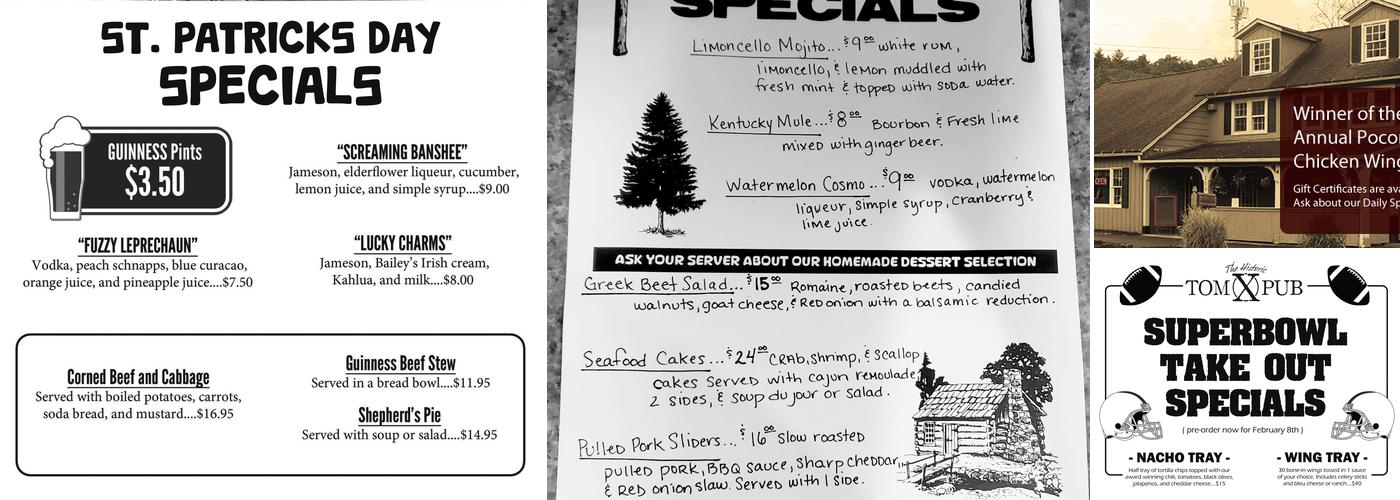 ST. PATRICKS DAY
SPECIALS
GUINNESS Pints
$3.50
"SCREAMING BANSHEE"
Jameson, elderflower liqueur, cucumber,
lemon juice, and simple syrup....$9.00
"FUZZY LEPRECHAUN"
Vodka, peach schnapps, blue curacao,
orange juice, and pineapple juice....$7.50
"LUCKY CHARMS"
Jameson, Bailey's Irish cream,
Kahlua, and milk....$8.00
Corned Beef and Cabbage
Served with boiled potatoes, carrots,
soda bread, and mustard....$16.95
Guinness Beef Stew
Served in a bread bowl....$11.95
Shepherd's Pie
Served with soup or salad....$14.95
SPECIALS
Limoncello Mojito...$9.00 white rum,
limoncello, & lemon muddled with
fresh mint & topped with soda water.
Kentucky Mule...$8.00 Bourbon & Fresh lime
mixed with ginger beer.
Watermelon Cosmo...$9.00 vodka, watermelon
liqueur, simple syrup, cranberry &
lime juice.
ASK YOUR SERVER ABOUT OUR HOMEMADE DESSERT SELECTION
Greek Beet Salad...$15.00 Romaine, roasted beets, candied
walnuts, goat cheese, & Red onion with a balsamic reduction.
Seafood Cakes...$24.00 Crab, shrimp, & scallop
cakes served with cajun remoulade,
2 sides, & soup du jour or salad.
Pulled Pork Sliders...$16.00 slow roasted
pulled pork, BBQ sauce, sharp cheddar,
& Red onion slaw. Served with 1 side.
OPEN
Winner of the
Annual Poco
Chicken Win
Gift Certificates are ava
Ask about our Daily Sp
The Historic
TOM X PUB
SUPERBOWL
TAKE OUT
SPECIALS
( pre-order now for February 8th )
- NACHO TRAY -
Half tray of tortilla chips topped with our
award winning chili, tomatoes, black olives,
jalapenos, and cheddar cheese....$15
- WING TRAY -
30 bone-in wings tossed in 1 sauce
of your choice. Includes celery sticks
and bleu cheese or ranch....$40